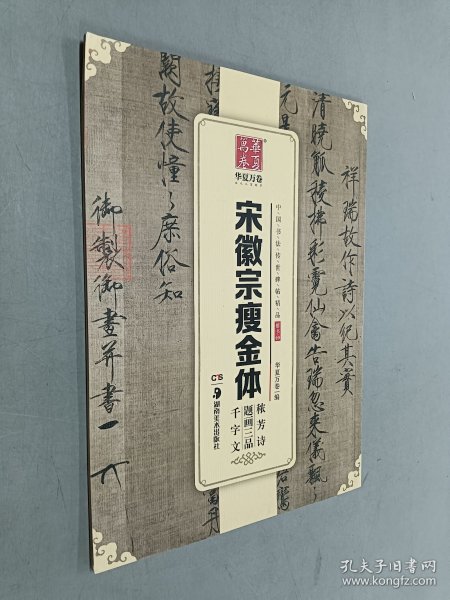 祥瑞故作詩以紀其實
清曉觚稜拂彩霓仙禽告瑞忽來儀飄〻
元是
華夏
萬卷
华夏万卷
中国书法传世碑帖精品
宋徽宗瘦金体
华夏万卷 编
秾芳诗
题画三品
千字文
湖南美术出版社
關故使憧〻庶俗知
御製御書并書
孔夫子旧书网
www.kongfz.com